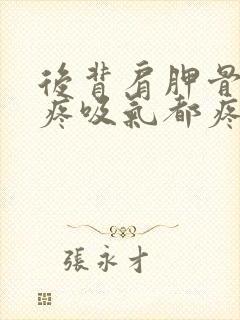 後背肩胛骨
疼吸氣都疼
張永才